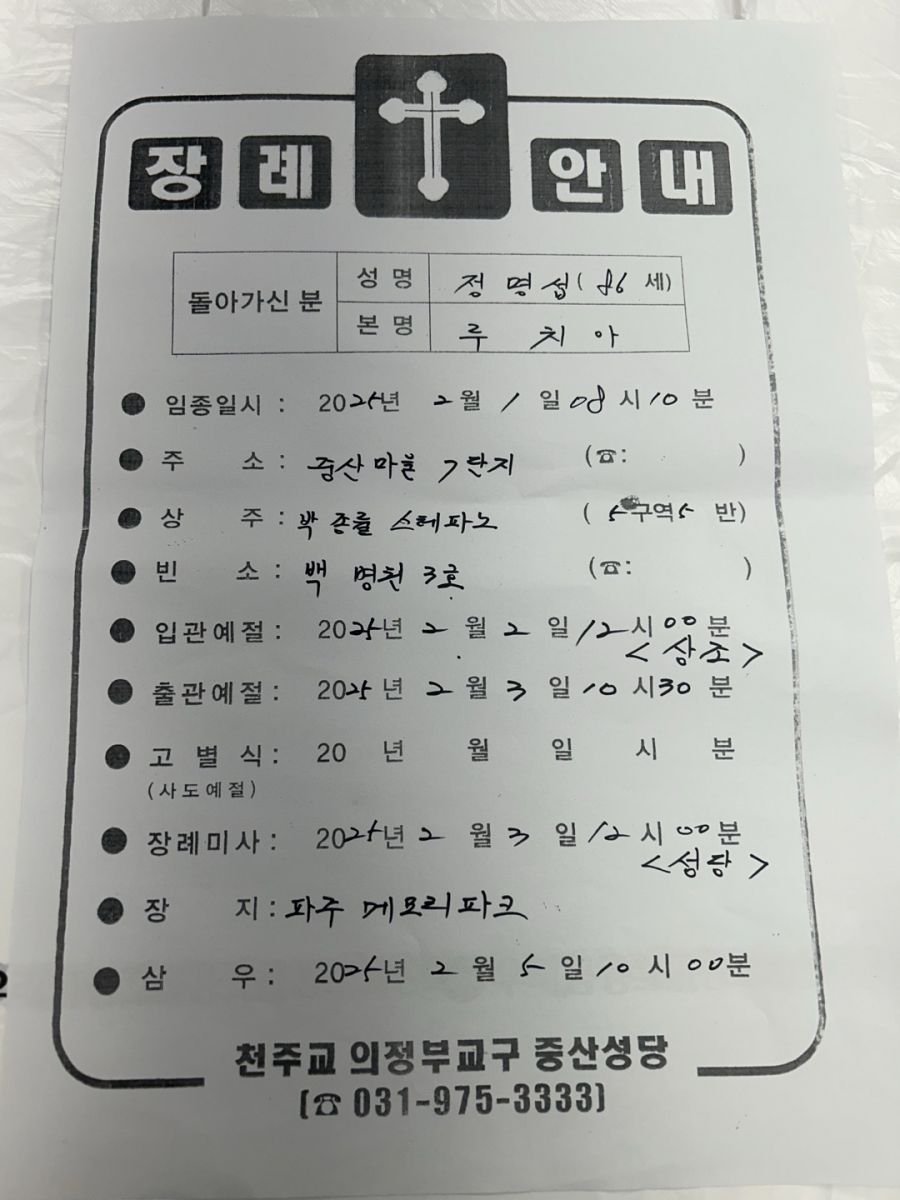 장례 안내
돌아가신 분
성 명 정 명 섭 ( 86 세)
본 명 루 치 아
● 임종일시 : 2025년 2월 1일 08시 10분
● 주 소 : 중산마을 7단지 (☎: )
● 상 주 : 박 스테파노 (5구역 5 반)
● 빈 소 : 백 병원 3호 (☎: )
● 입관예절 : 2025년 2월 2일 12시 00분
<상조>
● 출관예절 : 2025년 2월 3일 10시 30분
● 고 별 식 : 20 년 월 일 시 분
(사도예절)
● 장례미사 : 2025년 2월 3일 12시 00분
<성당>
● 장 지 : 파주 메모리파크
● 삼 우 : 2025년 2월 5일 10시 00분
천주교 의정부교구 중산성당
(☎ 031-975-3333)